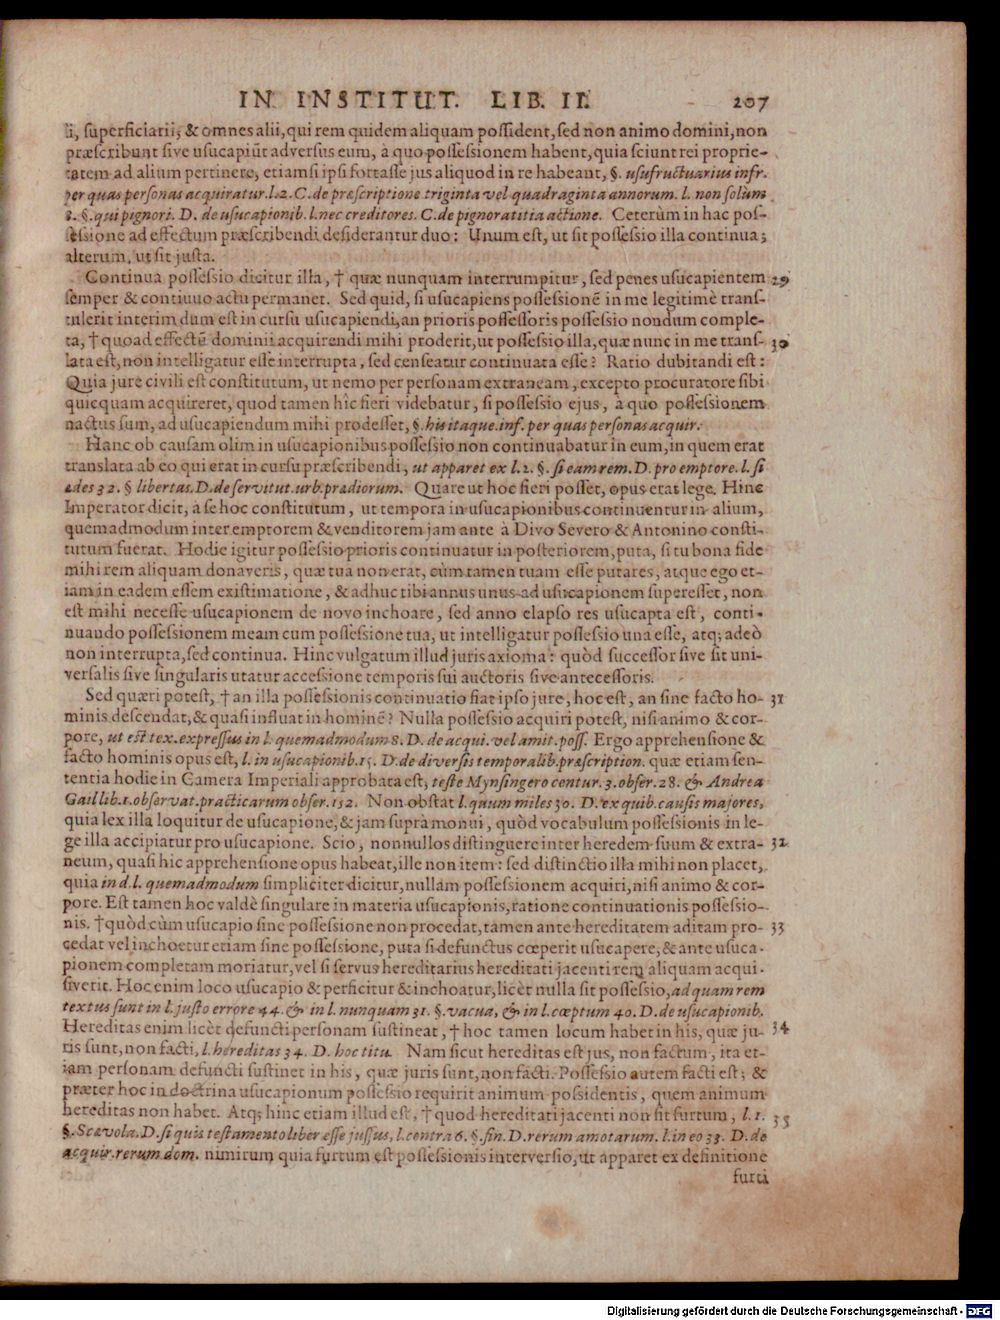 IN INSTITUT. LIB. II. 207
li, superficiarii, & omnes alii, qui rem quidem aliquam possident, sed non animo domini, non
præscribunt sive usucapiũt adversus eum, à quo possessionem habent, quia sciunt rei proprie-
tatem ad alium pertinere, etiamsi ipsi fortasse jus aliquod in re habeant, §. usufructuarius infr.
per quas personas acquiratur. l. 2. C. de præscriptione triginta vel quadraginta annorum. l. non solùm
8. §. qui pignori. D. de usucapionib. l. nec creditores. C. de pignoratitia actione. Ceterùm in hac pos-
sessione ad effectum præscribendi desiderantur duo: Unum est, ut sit possessio illa continua;
alterum, ut sit justa.
Continua possessio dicitur illa, † quæ nunquam interrumpitur, sed penes usucapientem 29
semper & contiuuo actu permanet. Sed quid, si usucapiens possessionẽ in me legitimè trans-
tulerit interim dum est in cursu usucapiendi, an prioris possessoris possessio nondum comple-
ta, † quoad effectũ dominii acquirendi mihi proderit, ut possessio illa, quæ nunc in me trans- 30
lata est, non intelligatur esse interrupta, sed censeatur continuata esse? Ratio dubitandi est:
Quia jure civili est constitutum, ut nemo per personam extraneam, excepto procuratore sibi
quicquam acquireret, quod tamen hîc fieri videbatur, si possessio ejus, à quo possessionem
nactus sum, ad usucapiendum mihi prodesset, §. his itaque. inf. per quas personas acquir.
Hanc ob causam olim in usucapionibus possessio non continuabatur in eum, in quem erat
translata ab eo qui erat in cursu præscribendi, ut apparet ex l. 2. §. si eam rem. D. pro emptore. l. si
ædes 32. § libertas. D. de servitut. urb. prædiorum. Quare ut hoc fieri posset, opus erat lege. Hinc
Imperator dicit, à se hoc constitutum, ut tempora in usucapionibus continuentur in alium,
quemadmodum inter emptorem & venditorem jam ante à Divo Severo & Antonino consti-
tutum fuerat. Hodie igitur possessio prioris continuatur in posteriorem, puta, si tu bona fide
mihi rem aliquam donaveris, quæ tua non erat, cùm tamen tuam esse putares, atque ego et-
iam in eadem essem existimatione, & adhuc tibi annus unus ad usucapionem superesset, non
est mihi necesse usucapionem de novo inchoare, sed anno elapso res usucapta est, conti-
nuando possessionem meam cum possessione tua, ut intelligatur possessio una esse, atq; adeò
non interrupta, sed continua. Hinc vulgatum illud juris axioma: quòd successor sive sit uni-
versalis sive singularis utatur accessione temporis sui auctoris sive antecessoris.
Sed quæri potest, † an illa possessionis continuatio fiat ipso jure, hoc est, an sine facto ho- 31
minis descendat, & quasi influat in hominẽ? Nulla possessio acquiri potest, nisi animo & cor-
pore, ut est tex. expressus in l. quemadmodum 8. D. de acqui. vel amit. poss. Ergo apprehensione &
facto hominis opus est, l. in usucapionib. 15. D. de diversis temporalib. præscription. quæ etiam sen-
tentia hodie in Camera Imperiali approbata est, teste Mynsingero centur. 3. obser. 28. & Andrea
Gail lib. 1. observat. practicarum obser. 152. Non obstat l. quum miles 30. D. ex quib. causis majores,
quia lex illa loquitur de usucapione, & jam suprà monui, quòd vocabulum possessionis in le-
ge illa accipiatur pro usucapione. Scio, nonnullos distinguere inter heredem suum & extra- 32
neum, quasi hic apprehensione opus habeat, ille non item: sed distinctio illa mihi non placet,
quia in d. l. quemadmodum simpliciter dicitur, nullam possessionem acquiri, nisi animo & cor-
pore. Est tamen hoc valdè singulare in materia usucapionis, ratione continuationis possessio-
nis. † quòd cùm usucapio sine possessione non procedat, tamen ante hereditatem aditam pro- 33
cedat vel inchoetur etiam sine possessione, puta si defunctus cœperit usucapere, & ante usuca-
pionem completam moriatur, vel si servus hereditarius hereditati jacenti rem aliquam acqui-
siverit. Hoc enim loco usucapio & perficitur & inchoatur, licèt nulla sit possessio, ad quam rem
textus sunt in l. justo errore 44. & in l. nunquam 31. §. vacua, & in l. cœptum 40. D. de usucapionib.
Hereditas enim licèt defuncti personam sustineat, † hoc tamen locum habet in his, quæ ju- 34
ris sunt, non facti, l. hereditas 34. D. hoc titu. Nam sicut hereditas est jus, non factum, ita et-
iam personam defuncti sustinet in his, quæ juris sunt, non facti. Possessio autem facti est; &
præter hoc in doctrina usucapionum possessio requirit animum possidentis, quem animum
hereditas non habet. Atq; hinc etiam illud est, † quod hereditati jacenti non fit furtum, l. 1. 35
§. Scævola. D. si quis testamento liber esse jussus, l. contra 6. §. fin. D. rerum amotarum. l. in eo 33. D. de
acquir. rerum dom. nimirum quia furtum est possessionis interversio, ut apparet ex definitione
furti
Digitalisierung gefördert durch die Deutsche Forschungsgemeinschaft - DFG